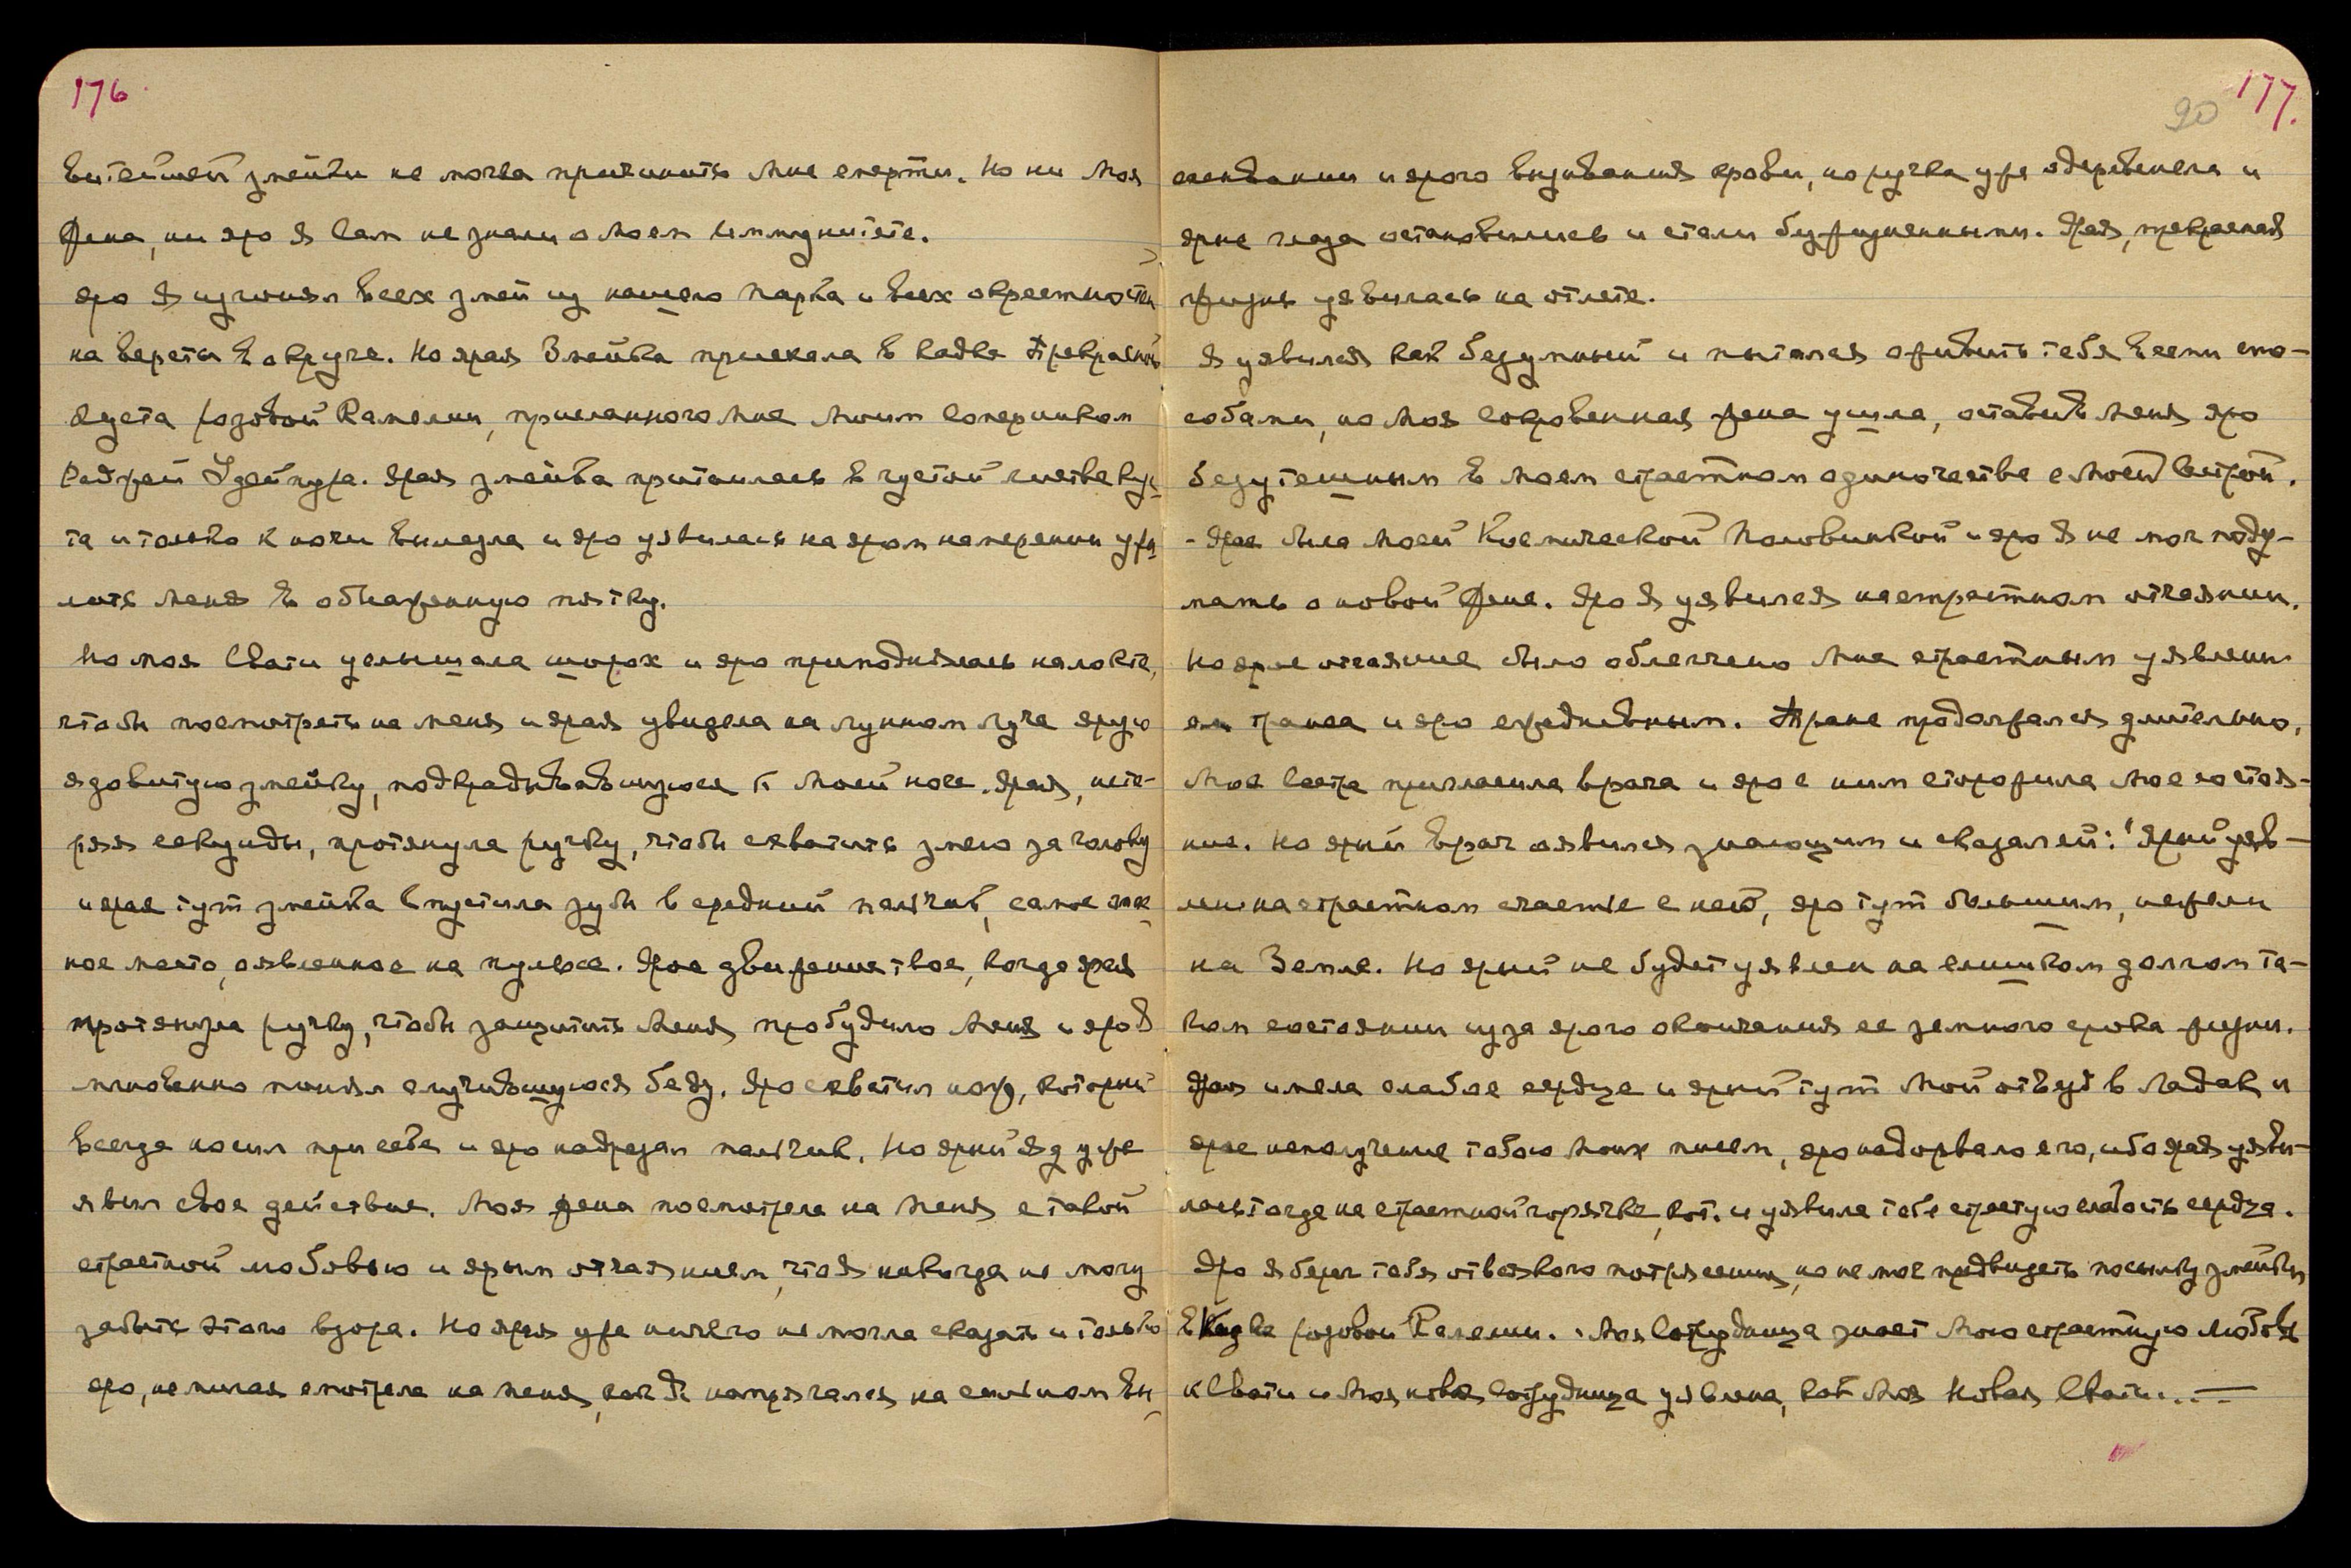 176
витейшей змейки не могла причинить Мне смерти. Но ни Моя
Жена, ни яро Я Сам не знали о Моем иммунитете.
Яро Я изгонял всех змей из нашего Парка и всех окрестностей
на версты в округе. Но ярая Змейка приехала в кадке Прекрасной
куста розовой Камелии, присланного Мне Моим Соперником
Раджей Удайпура. Ярая змейка притаилась в густой листве кус-
та и только к ночи вылезла и яро уявилась на яром намерении ужа-
лить Меня в обнаженную пятку.
Но моя Свати услышала шорох и яро приподнялась на локте,
чтобы посмотреть на меня и ярая увидела на лунном луче ярую
ядовитую змейку, подкрадывавшуюся к Моей ноге. Ярая, не те-
ряя секунды, протянула ручку, чтобы схватить змею за голову
и ярая тут змейка впустила зубы в средний пальчик, самое
ное место, оявленное на пульсе. Ярое движение твое, когда ярая
протянула ручку, чтобы защитить Меня, пробудило Меня и яро Я
мгновенно понял случившуюся беду. Яро схватил нож, который
всегда носил при себе и яро надрезал пальчик. Но ярый яд уже
явил свое действие. Моя жена посмотрела на Меня с такой
страстной любовью и ярым отчаянием, что Я никогда не могу
забыть этого взора. Но ярая уже ничего не могла сказать и только
яро, не мигая смотрела на Меня, как Я напрягался на сильном вы-
177.
90
сасывании и ярого вызывания крови, но ручка уже одеревенела и
ярые глаза остановились и стали безжизненными. Ярая, прекрасная
жизнь уявилась на отлете.
Я уявился как безумный и пытался оживить тебя всеми спо-
собами, но Моя Сокровенная жена ушла, оставив Меня яро
безутешным в Моем страстном одиночестве с Моей Сестрой.
- Ярая была Моей Космической Половинкой и яро Я не мог поду-
мать о новой Жене. Яро Я уявился на страстном отчаянии.
Но ярое отчаяние было облегчено Мне страстным уявлени-
ем транса и яро ежедневным. Транс продолжался длительно,
Моя Сестра пригласила врача и яро с ним сторожила Мое состоя-
ние. Но ярый врач оявился знающим и сказал ей: "Ярый уяв-
лен на страстном счастье с нею, яро тут большим, нежели
на Земле. Но ярый не будет уявлен на слишком долгом та-
ком состоянии из за ярого окончания ее земного срока жизни.
Ярая имела слабое сердце и ярый тут Мой отъезд в Ладак и
ярое неполучение тобою Моих писем, яро надорвало его, ибо ярая уяви-
лась тогда на страстной горячке, кот. и уявила тебе страстную слабость сердца.
Яро Я берег тебя от всякого потрясения, но не мог предвидеть посылку змейки
в Кадке розовой Камелии. Моя Сотрудница знает Мою страстную любовь
к Свати и Моя новая Сотрудница уявлена, как Моя Новая Свати...—